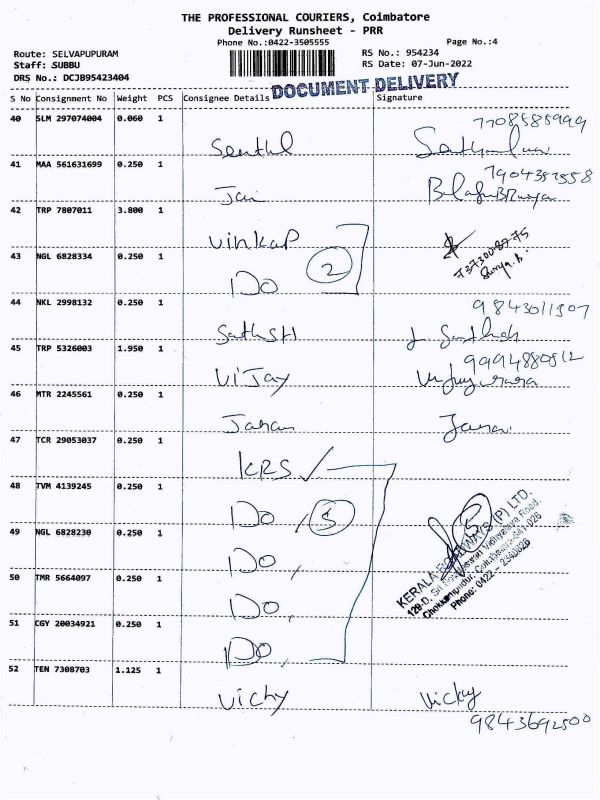 THE PROFESSIONAL COURIERS, Coimbatore
Delivery Runsheet - PRR
Phone No.:0422-3505555 Page No.:4
Route: SELVAPUPURAM RS No.: 954234
Staff: SUBBU RS Date: 07-Jun-2022
DRS No.: DCJB95423404
DOCUMENT DELIVERY
S No Consignment No Weight PCS Consignee Details Signature
40 SLM 297074004 0.060 1 7708585999
Senthil
41 MAA 561631699 0.250 1 7904357558
Jai
42 TRP 7807011 3.800 1
Vinkap
43 NGL 6828334 0.250 1 2 73730087 75
Do Surya.
44 NKL 2998132 0.250 1 9843011307
Sathsh
45 TRP 5326003 1.950 1 9994880812
Vijay
46 MTR 2245561 0.250 1
Jaran
47 TCR 29053037 0.250 1
KRS ✓
48 TVM 4139245 0.250 1
Do, 5
49 NGL 6828230 0.250 1
Do,
50 TMR 5664097 0.250 1
Do,
51 CGY 20034921 0.250 1
Do,
KERALA ROADWAYS (P) LTD.
Road,
Chokkampudur, Coimbatore-641 026
Phone: 0422 - 2340826
52 TEN 7308703 1.125 1
Vichy Vicky
9843692500